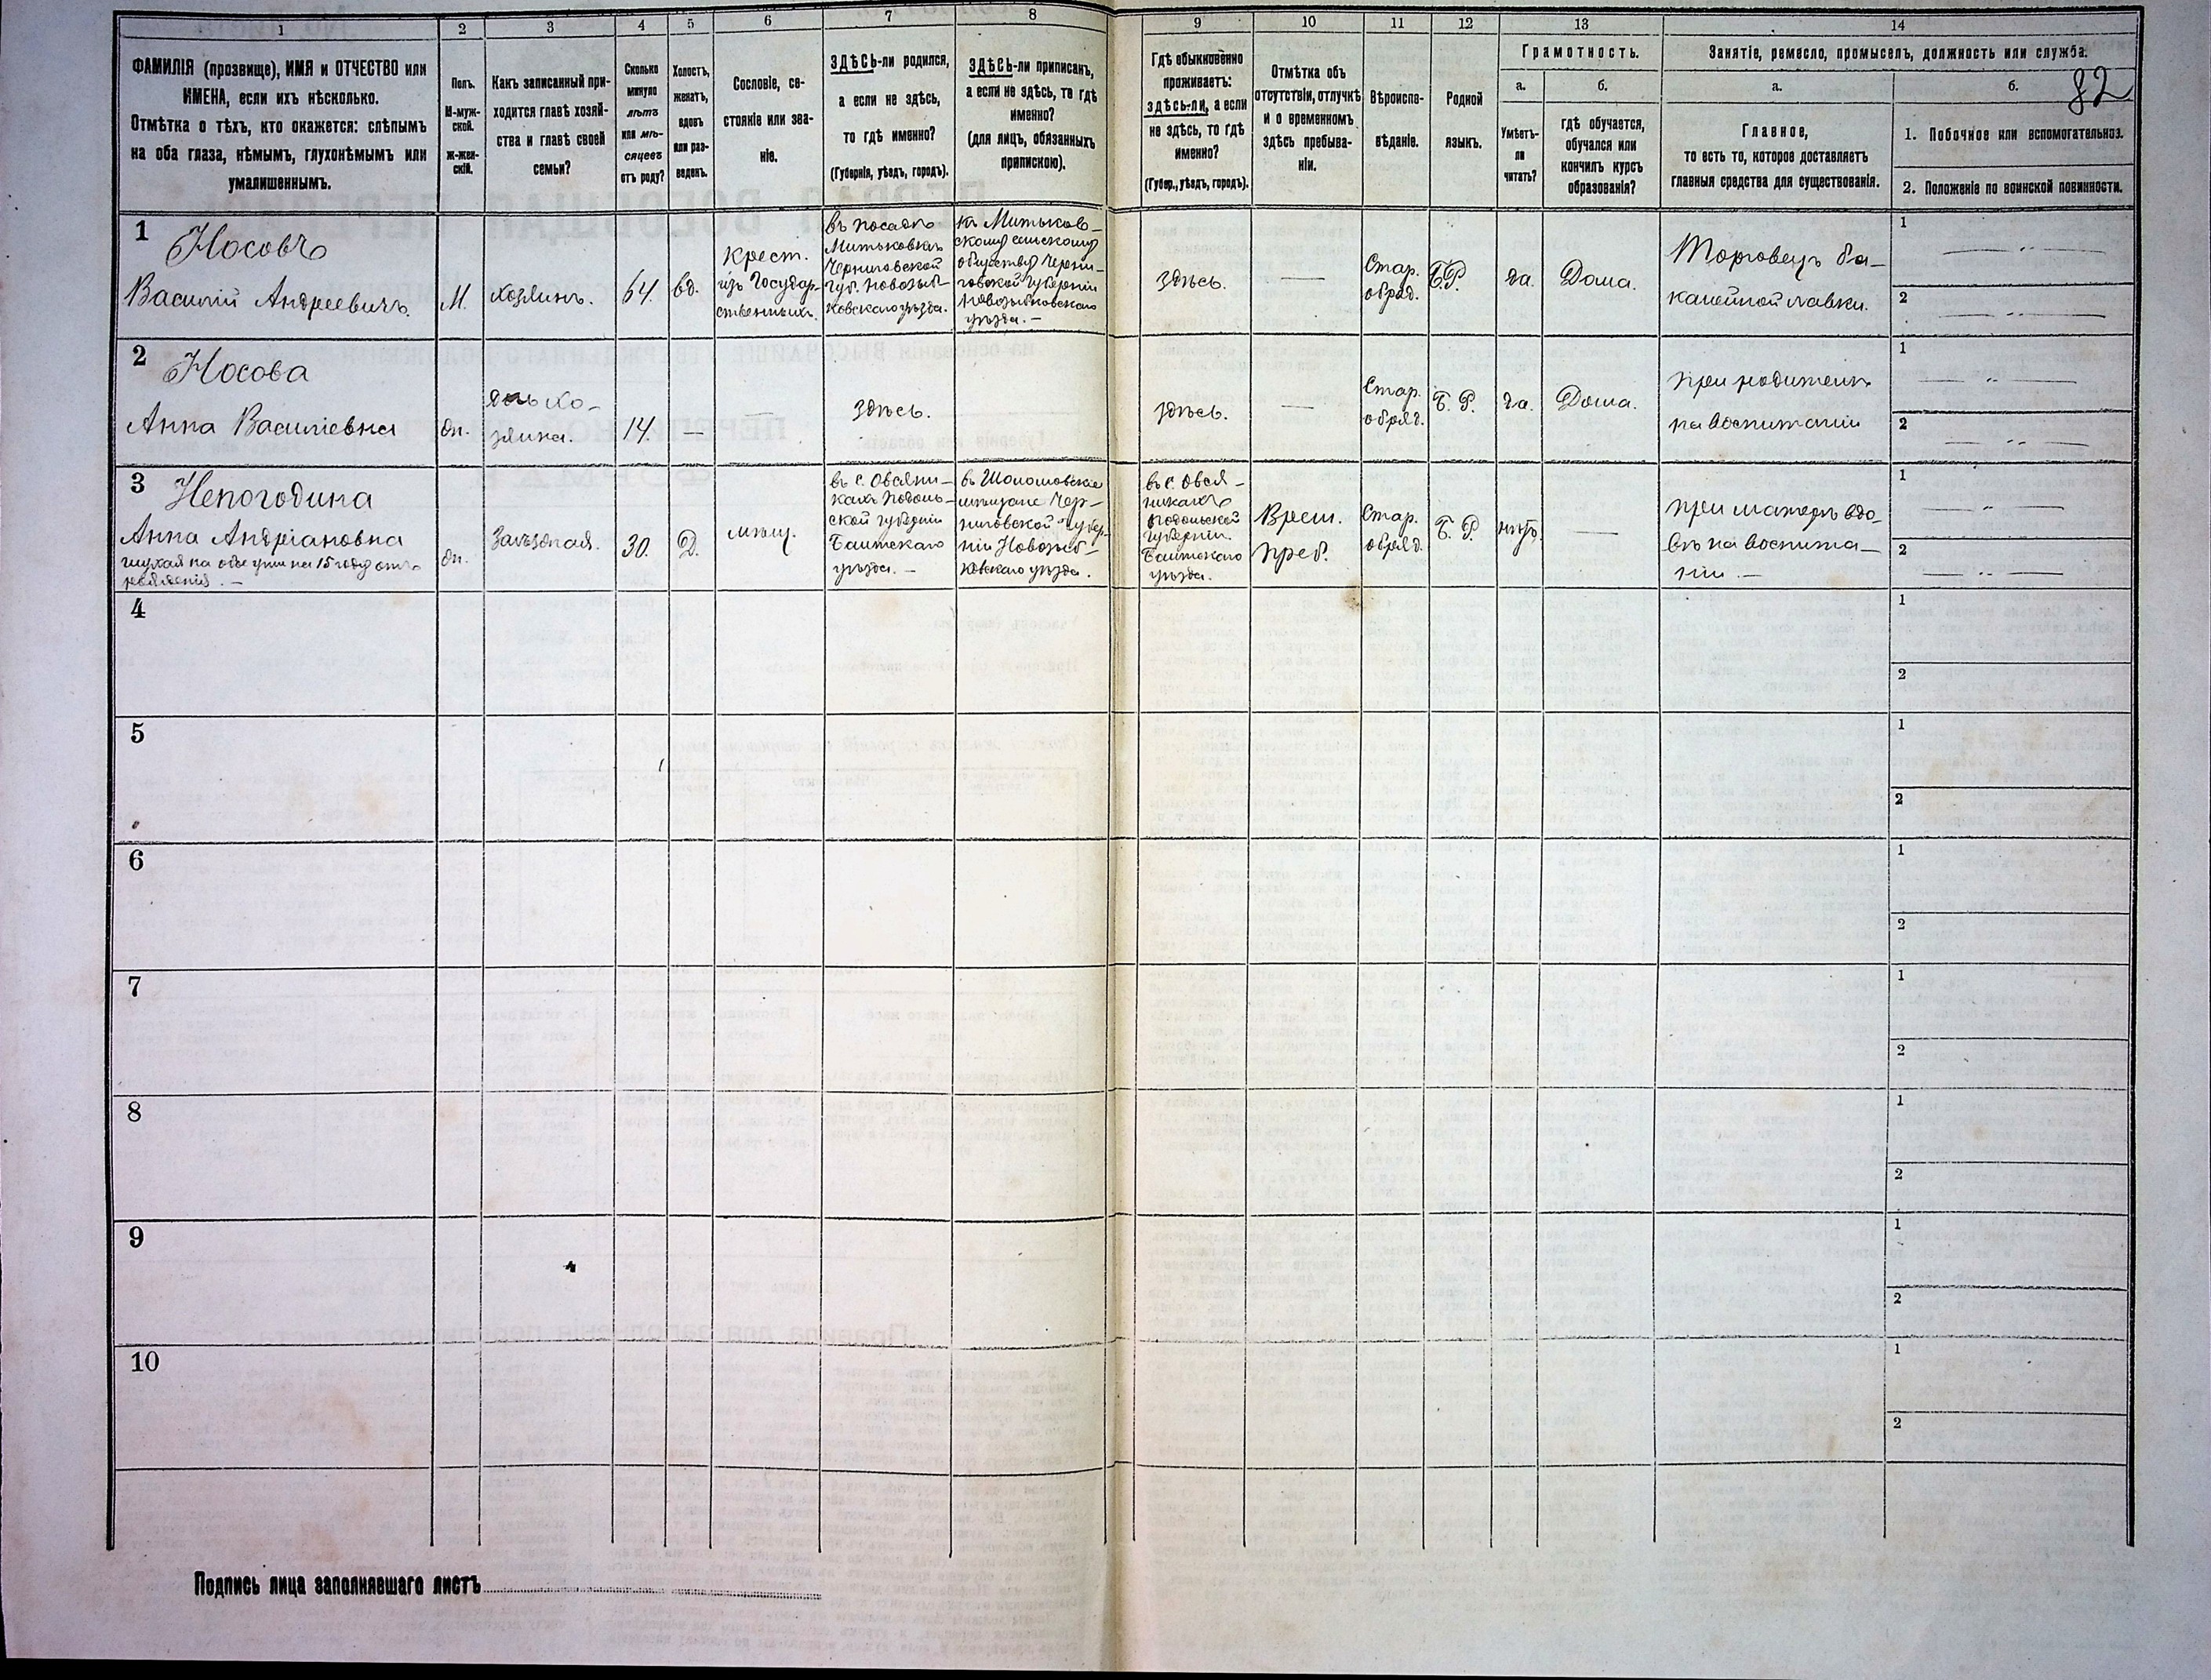 1 2 3 4 5 6 7 8 9 10 11 12 13 14
ФАМИЛІЯ (прозвище), ИМЯ и ОТЧЕСТВО или
ИМЕНА, если ихъ нѣсколько.
Отмѣтка о тѣхъ, кто окажется: слѣпымъ
на оба глаза, нѣмымъ, глухонѣмымъ или
умалишеннымъ.
Полъ.
М-муж-
ской.
Ж-жен-
скій.
Какъ записанный при-
ходится главѣ хозяй-
ства и главѣ своей
семьи?
Сколько
минуло
лѣтъ
или мѣ-
сяцевъ
отъ роду?
Холостъ,
женатъ,
вдовъ
или раз-
веденъ.
Сословіе, со-
стояніе или зва-
ніе.
ЗДѢСЬ-ли родился,
а если не здѣсь,
то гдѣ именно?
(Губернія, уѣздъ, городъ).
ЗДѢСЬ-ли приписанъ,
а если не здѣсь, то гдѣ
именно?
(для лицъ, обязанныхъ
припискою).
Гдѣ обыкновенно
проживаетъ:
здѣсь-ли, а если
не здѣсь, то гдѣ
именно?
(Губер., уѣздъ, городъ).
Отмѣтка объ
отсутствіи, отлучкѣ
и о временномъ
здѣсь пребыва-
ніи.
Вѣроиспо-
вѣданіе.
Родной
языкъ.
Грамотность.
а.
Умѣетъ-
ли
читать?
б.
гдѣ обучается,
обучался или
кончилъ курсъ
образованія?
Занятіе, ремесло, промыселъ, должность или служба.
а.
Главное,
то есть то, которое доставляетъ
главныя средства для существованія.
б.
82
1. Побочное или вспомогательноз.
2. Положеніе по воинской повинности.
1
Носовъ
Василій Андреевичъ.
М.
хозяинъ.
64.
вд.
Крест.
изъ Государ-
ственныхъ.
въ посадѣ
Митьковкѣ
Черниговской
губ. Новозыб-
ковскаго уѣзда.
къ Митьков-
скому сельскому
обществу Черни-
говской губерніи
Новозыбковскаго
уѣзда. —
здѣсь.
—
Стар.
обряд.
Б.Р.
да.
Дома.
Торговецъ ба-
калейной лавки.
1 — " —
2 — " —
2
Носова
Анна Василіевна
дочь хо-
зяина.
14.
—
—
здѣсь.
здѣсь.
—
Стар.
обряд.
Б. Р.
да.
Дома.
при родителѣ
на воспитаніи
1 — " —
2 — " —
3
Непогодина
Анна Андріановна
отъ
рожденія. —
30.
Д.
мѣщ.
въ с. Овсяни-
кахъ Подоль-
ской губерніи
Балтскаго
уѣзда. —
мѣщане Чер-
ниговской губер-
ніи Новозыб-
ковскаго уѣзда.
въ с. Овся-
никахъ
Подольской
губерніи.
Балтскаго
уѣзда.
Врем.
преб.
Стар.
обряд.
Б. Р.
нѣтъ.
—
при матери вдо-
вѣ на воспита-
ніи. —
1 — " —
2 — " —
4
1
2
5
1
2
6
1
2
7
1
2
8
1
2
9
1
2
10
1
2
Подпись лица заполнявшаго листъ